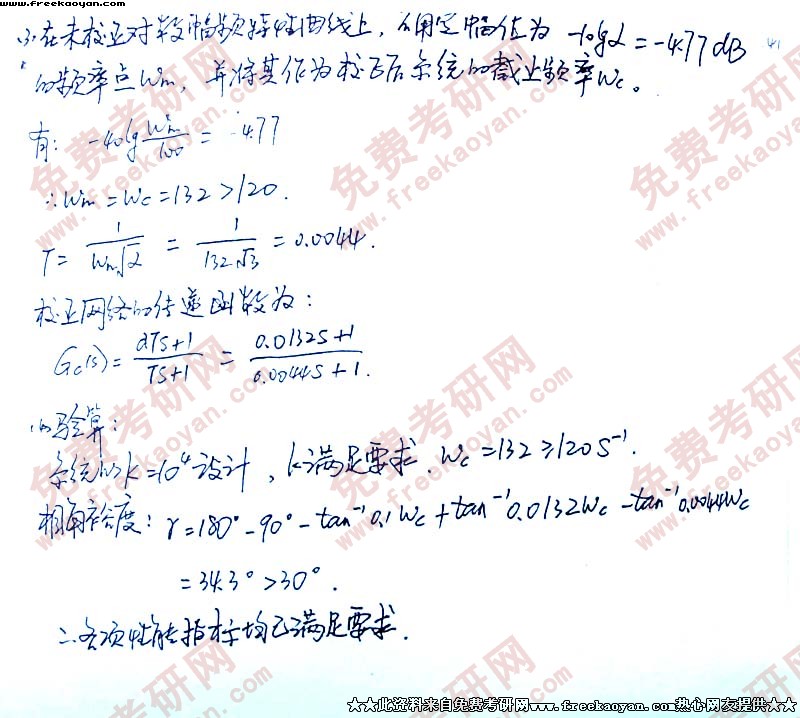 www.freekaoyan.com
(3). 在未校正对数幅频特性曲线上,应用定幅值为 -10lgα = -4.77dB
的频率点ωm, 并将其作为校正后系统的截止频率ωc。
有: -40lg ωm/100 = -4.77
∴ ωm = ωc = 132 > 120.
T = 1/(ωm√α) = 1/(132√3) = 0.0044.
校正网络的传递函数为:
Gc(s) = (αTs+1)/(Ts+1) = (0.0132s+1)/(0.0044s+1).
(4) 验算:
系统以K=10⁴设计, K满足要求. ωc = 132 ≥ 120 s⁻¹.
相角裕度: γ = 180° - 90° - tan⁻¹0.1ωc + tan⁻¹0.0132ωc - tan⁻¹0.0044ωc
= 34.3° > 30°.
∴ 各项性能指标均已满足要求.
免费考研网
www.freekaoyan.com
★★此资料来自免费考研网www.freekaoyan.com热心网友提供★★